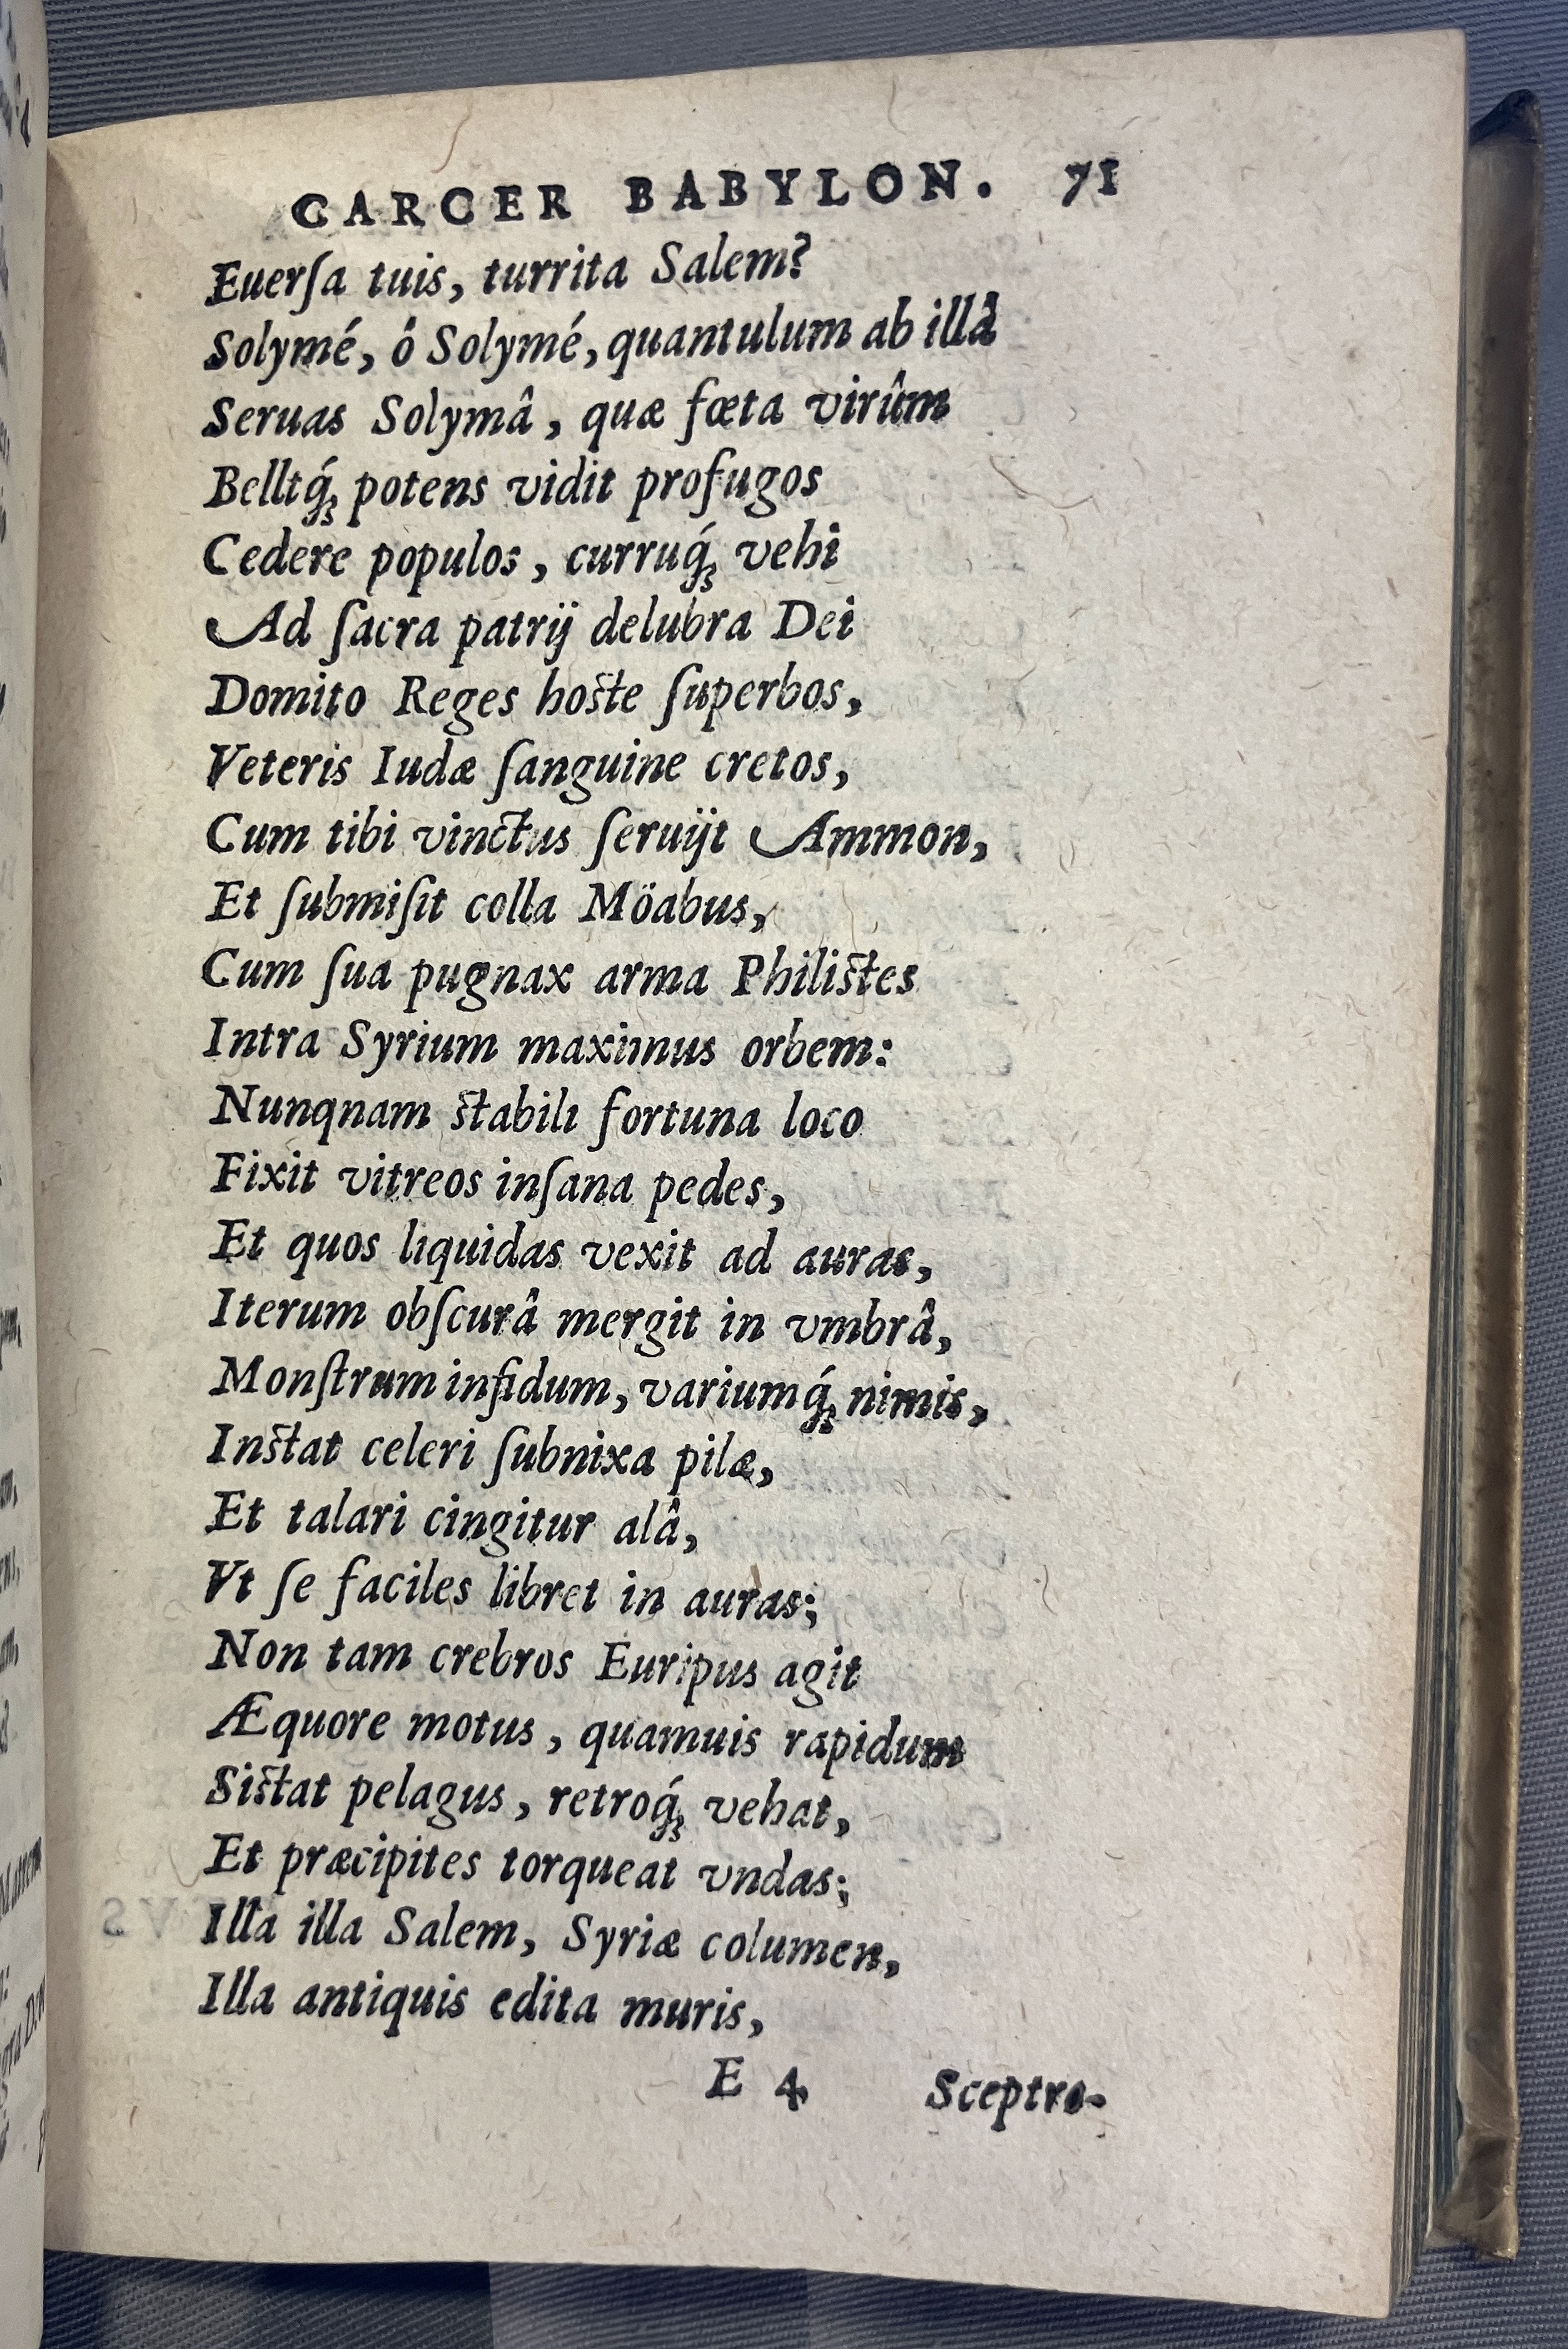 CARCER BABYLON. 71
Euerſa tuis, turrita Salem?
Solymé, ô Solymé, quantulum ab illâ
Seruas Solymâ, quæ fœta virûm
Bellíq́ꝫ potens vidit profugos
Cedere populos, curruq́ꝫ vehi
Ad ſacra patrij delubra Dei
Domito Reges hoſte ſuperbos,
Veteris Iudæ ſanguine cretos,
Cum tibi vinctus ſeruijt Ammon,
Et ſubmiſit colla Möabus,
Cum ſua pugnax arma Philiſtes
Intra Syrium maximus orbem:
Nunqnam ſtabili fortuna loco
Fixit vitreos inſana pedes,
Et quos liquidas vexit ad auras,
Iterum obſcurâ mergit in vmbrâ,
Monſtrum infidum, variumq́ꝫ nimis,
Inſtat celeri ſubnixa pilæ,
Et talari cingitur alâ,
Vt ſe faciles libret in auras;
Non tam crebros Euripus agit
Æquore motus, quamuis rapidum
Siſtat pelagus, retroq́ꝫ vehat,
Et præcipites torqueat vndas;
Illa illa Salem, Syriæ columen,
Illa antiquis edita muris,
E 4 Sceptro-